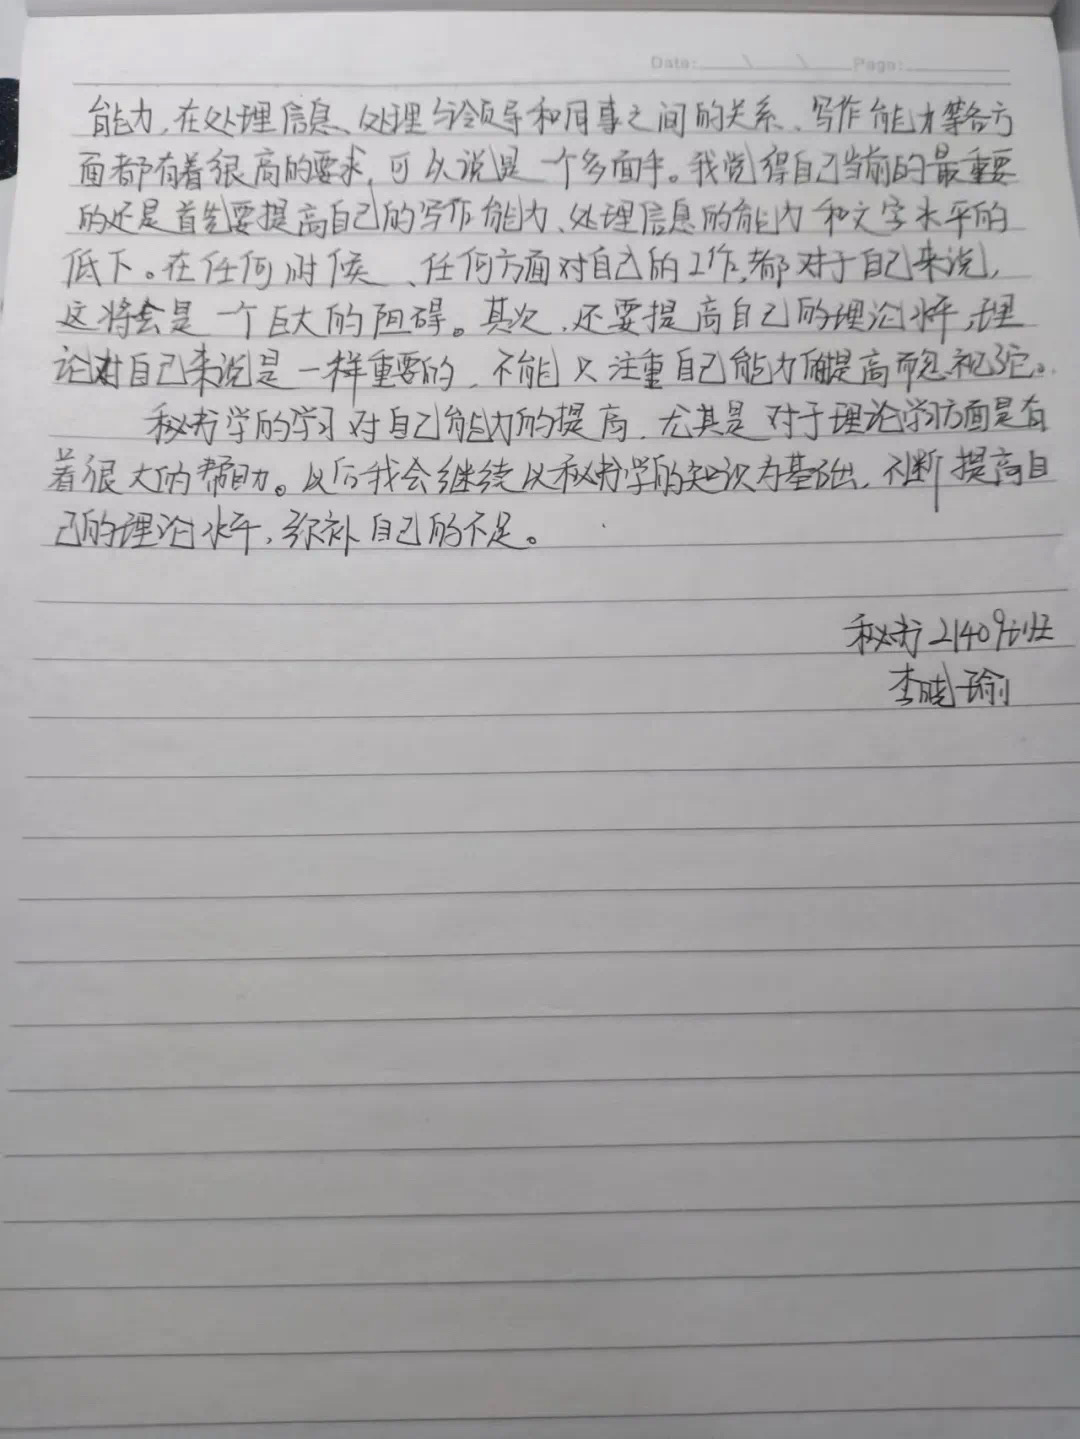 Date: Page:
能力,在处理信息、处理与领导和同事之间的关系、写作能力等各方
面都有着很高的要求,可以说是一个多面手。我觉得自己当前的最重要
的还是首先要提高自己的写作能力、处理信息的能力和文字水平的
低下。在任何时候、任何方面对自己的工作,都对于自己来说,
这将会是一个巨大的阻碍。其次,还要提高自己的理论水平,理
论对自己来说是一样重要的,不能只注重自己能力的提高而忽视它。
秘书学的学习对自己能力的提高,尤其是对于理论学习方面是有
着很大的帮助。以后我会继续以秘书学的知识为基础,不断提高自
己的理论水平,弥补自己的不足。
秘书21409班
李晓瑜